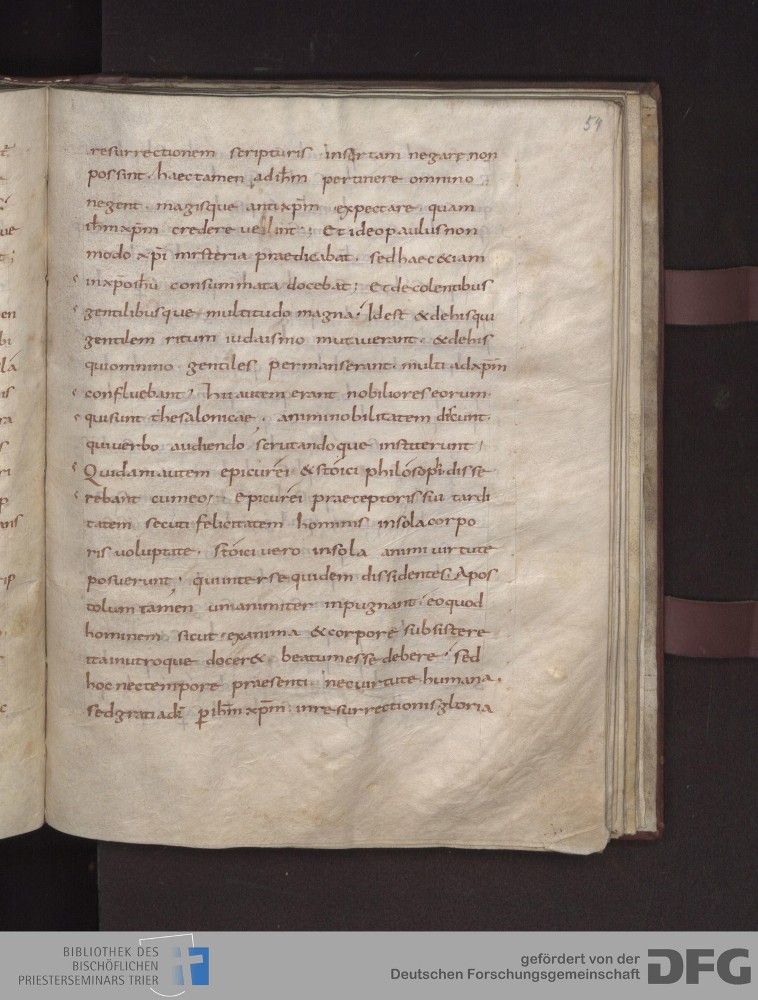 54
resurrectionem scripturis insertam negare non
possint. haec tamen ad ihm pertinere omnino
negent. magisque antixpm expectare quam
ihm xpm credere velint; Et ideo paulus non
modo xpi mysteria praedicabat. sed haec &iam
in xpo ihu consummata docebat; Et de colentibus
gentilibusque multitudo magna; Id est & de his qui
gentilem ritum iudaismo mutaverant. & de his
qui omnino gentiles permanserant. multi ad xpm
confluebant; hii autem erant nobiliores eorum.
qui sunt thesalonicae. animi nobilitatem dicunt.
qui verbo audiendo scrutandoque institerunt;
Quidam autem epicurei & stoici philosophi disse
rebant cum eo; Epicurei praeceptoris sui tardi
tatem secuti felicitatem hominis in sola corpo
ris voluptate. stoici vero in sola animi virtute
posuerunt. qui inter se quidem dissidentes. Apos
tolum tamen unanimiter inpugnant. eo quod
hominem sicut ex anima & corpore subsistere
ita in utroque docer& beatum esse debere. sed
hoc nec tempore praesenti nec virtute humana.
sed gratia di p ihm xpm in resurrectionis gloria
BIBLIOTHEK DES
BISCHÖFLICHEN
PRIESTERSEMINARS TRIER
gefördert von der
Deutschen Forschungsgemeinschaft
DFG